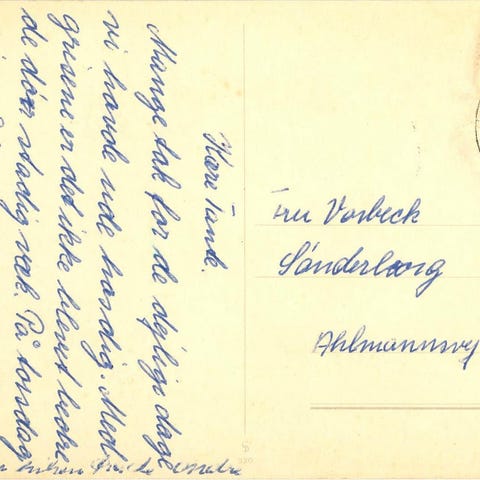 Kære Tante.
Mange tak for de dejlige dage
vi havde ude hos dig. Med
grisene er det ikke blevet bedre
de dør stadig væk. På torsdag
Fru Vorbeck
Sønderborg
Ahlmannsvej